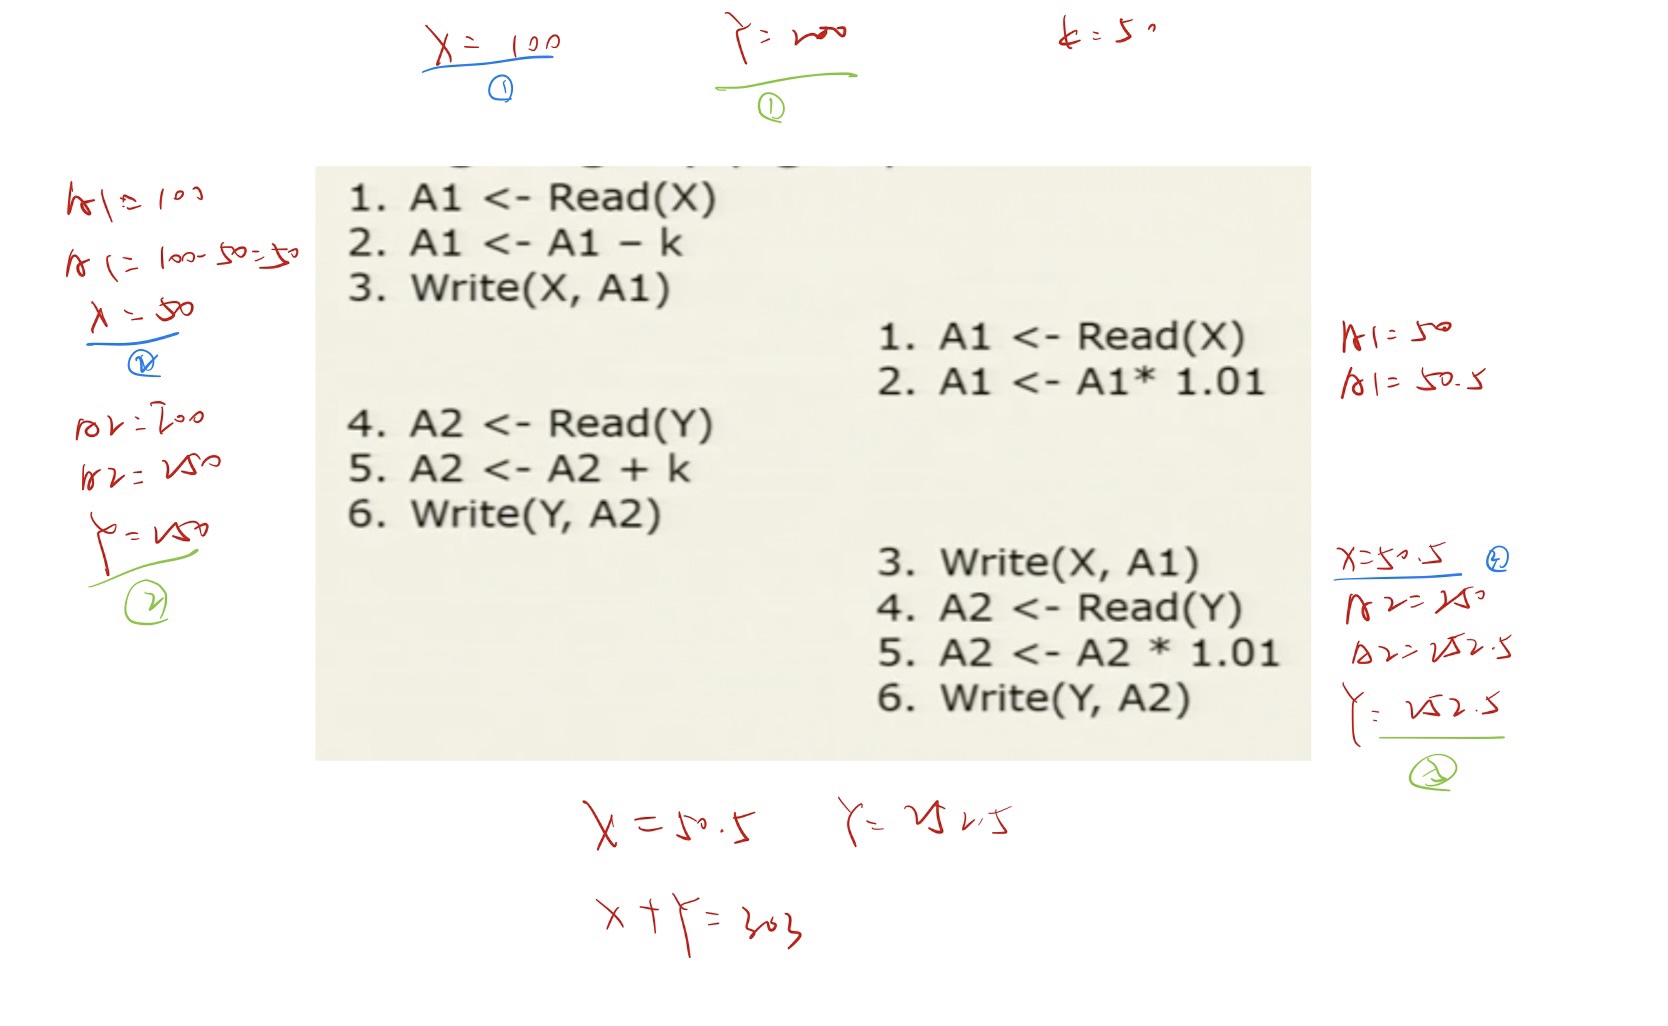 X = 100 Y = 200 k = 50
① ①
A1 = 100
A1 = 100 - 50 = 50
X = 50
②
A2 = 200
A2 = 250
Y = 250
②
1. A1 <- Read(X)
2. A1 <- A1 – k
3. Write(X, A1)
1. A1 <- Read(X)
2. A1 <- A1* 1.01
4. A2 <- Read(Y)
5. A2 <- A2 + k
6. Write(Y, A2)
3. Write(X, A1)
4. A2 <- Read(Y)
5. A2 <- A2 * 1.01
6. Write(Y, A2)
A1 = 50
A1 = 50.5
X = 50.5
A2 = 250
A2 = 252.5
Y = 252.5
X = 50.5 Y = 252.5
X + Y = 303